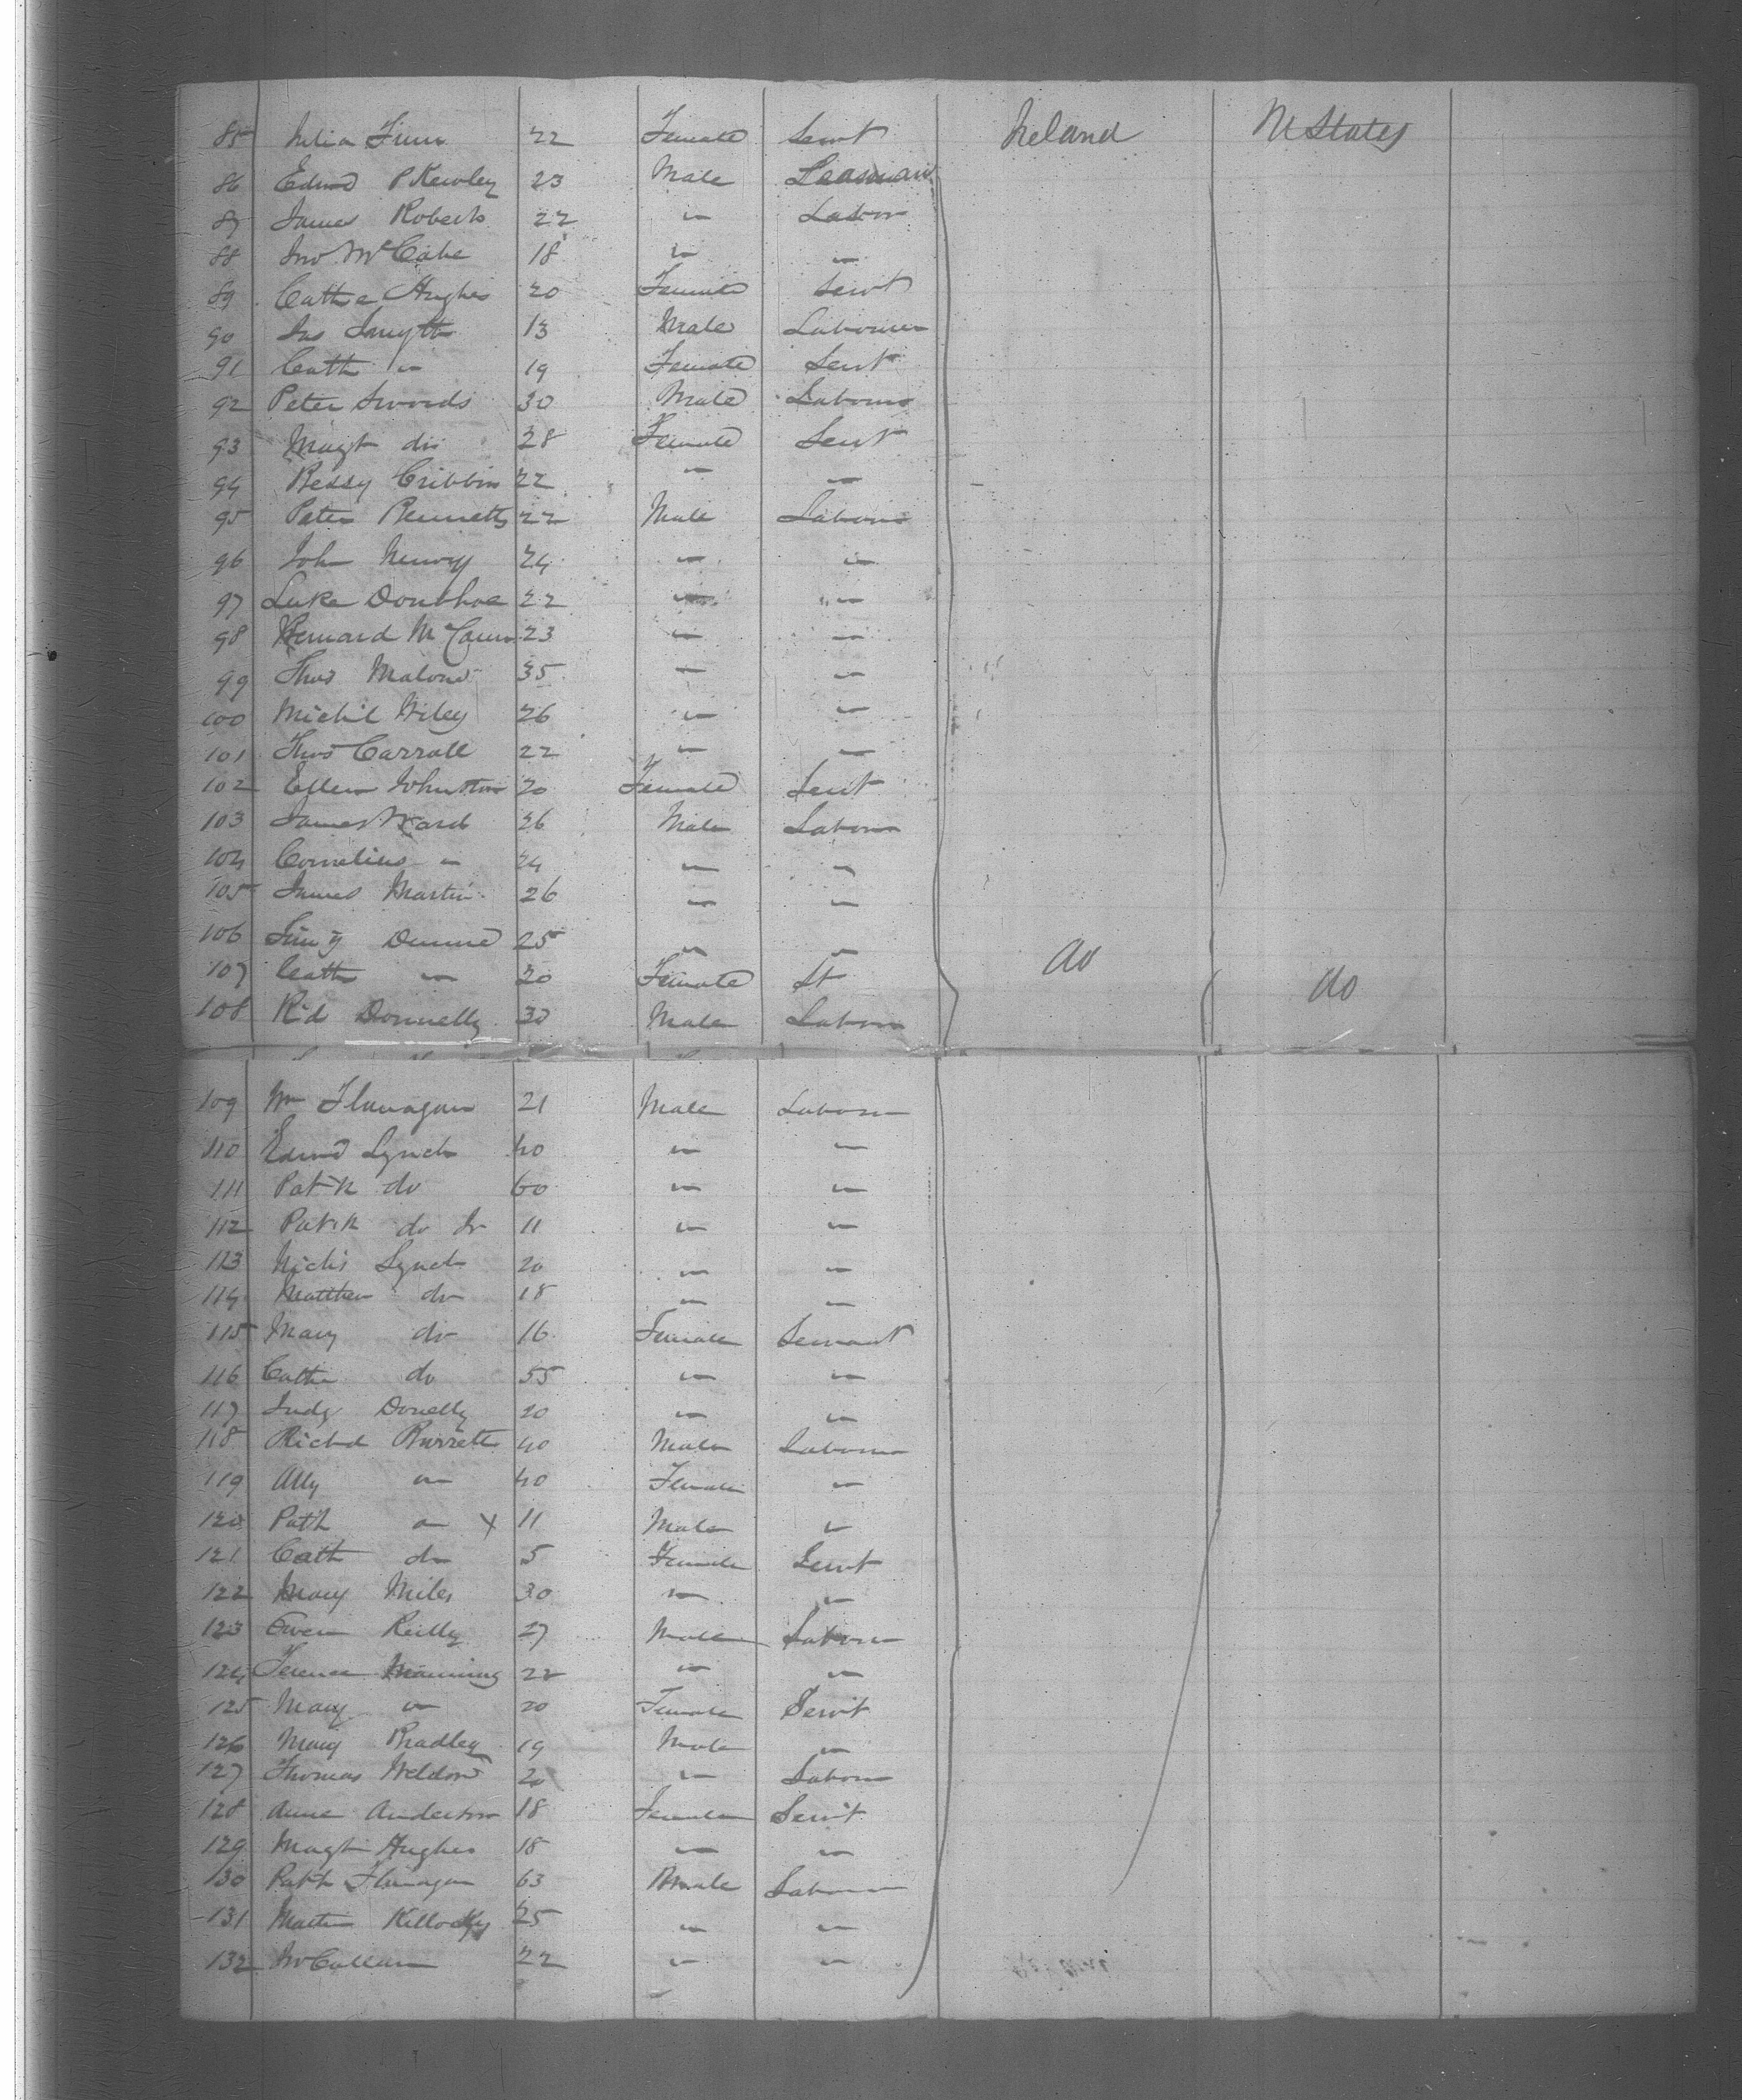 85 Julia Finn 22 Female Servt Ireland U States
86 Edwd P Kewley 23 Male
87 James Roberts 22 " Labor
88 Jno McCabe 18 " "
89 Cathe Hughes 20 Female Servt
90 Jas Smyth 13 Male Labourer
91 Cath " 19 Female Servt
92 Peter Swords 30 Male Labourer
93 Magt do 28 Female Servt
94 Bessy Cribbin 22 " "
95 Peter Bennett 22 Male Labour
96 John 24 " "
97 Luke Donohoe 22 " "
98 Bernard McCann 23 " "
99 Thos Malone 35 " "
100 Michl Wiley 26 " "
101 Thos Carroll 22 " "
102 Ellen Johnston 20 Female Servt
103 James Ward 26 Male Labour
104 Cornelius " 24 " "
105 James Martin 26 " "
106 Dunne 25 " " do
107 Cath " 20 Female St do
108 Rd Donnelly 30 Male Labour
109 Wm Flanagan 21 Male Labour
110 Edwd Lynch 40 " "
111 Patk do 60 " "
112 Patk do Jr 11 " "
113 Nichs Lynch 20 " "
114 Matthew do 18 " "
115 Mary do 16 Female Servant
116 Cathe do 55 " "
117 Judy Donelly 20 " "
118 Richd Barrett 40 Male Labour
119 Ally " 40 Female "
120 Patk " x 11 Male "
121 Cath do 5 Female Servt
122 Mary Miles 30 " "
123 Owen Reilly 27 Male Labour
124 Terence Manning 22 " "
125 Mary " 20 Female Servt
126 Mary Bradley 19 Male "
127 Thomas Weldon 20 " Labour
128 Anne Anderson 18 Female Servt
129 Magt Hughes 18 " "
130 Patk Flanagan 63 Male Labour
131 Martin 25 " "
132 Jno Callan 22 " "